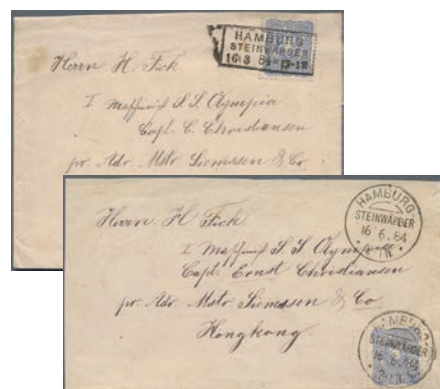 HAMBURG
STEINWÄRDER
16 3 84 12-1N
Herrn H. Fick
I. Maschinist S. S. Olympia
Capt. C. Christiansen
pr. Adr. Mstr Siemssen & Co
HAMBURG
STEINWÄRDER
16 6. 84
Herrn H. Fick
I. Maschinist S. S. Olympia
Capt. Ernst Christiansen
pr. Adr. Mstr Siemssen & Co
Hongkong.
HAMBURG
STEINWÄRDER
16 6. 84